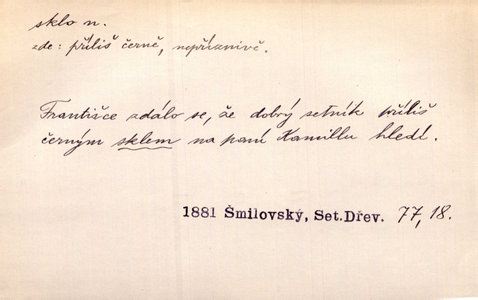 sklo n.
zde: příliš černě, nepříznivě.
Františce zdálo se, že dobrý setník příliš
černým sklem na paní Kamillu hledí.
1881 Šmilovský, Set.Dřev. 77, 18.